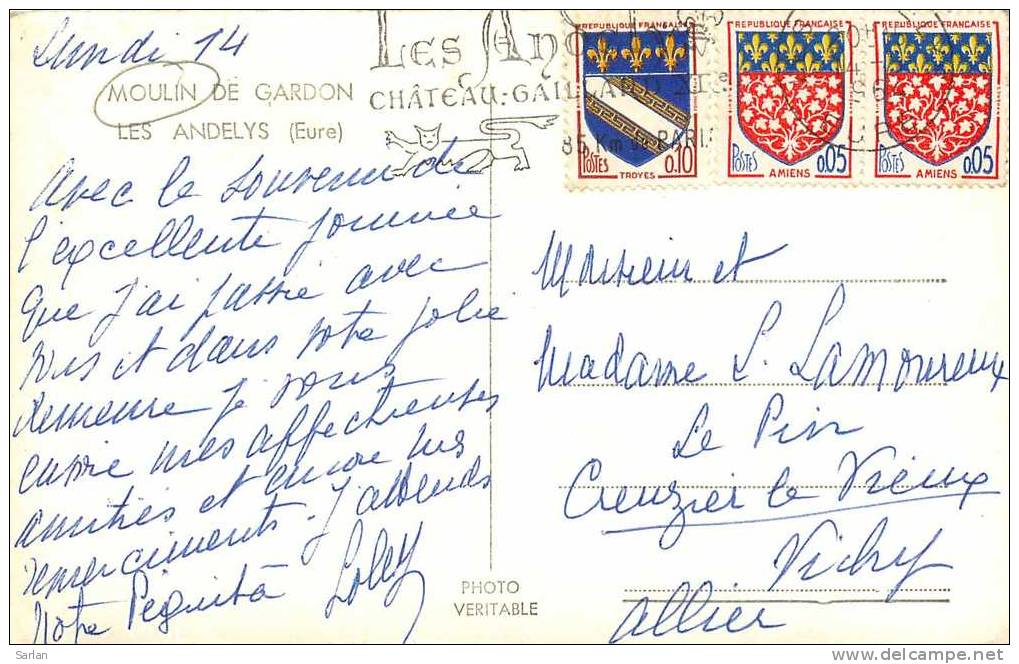 Lundi 14
MOULIN DE GARDON
LES ANDELYS (Eure)
Avec le souvenir de
l'excellente journée
que j'ai passée avec
vous et dans votre jolie
demeure je vous
envoie mes affectueuses
amitiés et encore mes
remerciements. J'attends
votre
PHOTO
VERITABLE
LES
CHÂTEAU-GAILLARD
85 Km de PARIS
REPUBLIQUE FRANÇAISE
POSTES 0.10
TROYES
REPUBLIQUE FRANÇAISE
POSTES 0.05
AMIENS
REPUBLIQUE FRANÇAISE
POSTES 0.05
AMIENS
Monsieur et
Madame L. Lamoureux
Le Pin
Creuzier le Vieux
Vichy
Allier
Sarlan
delcampe.net